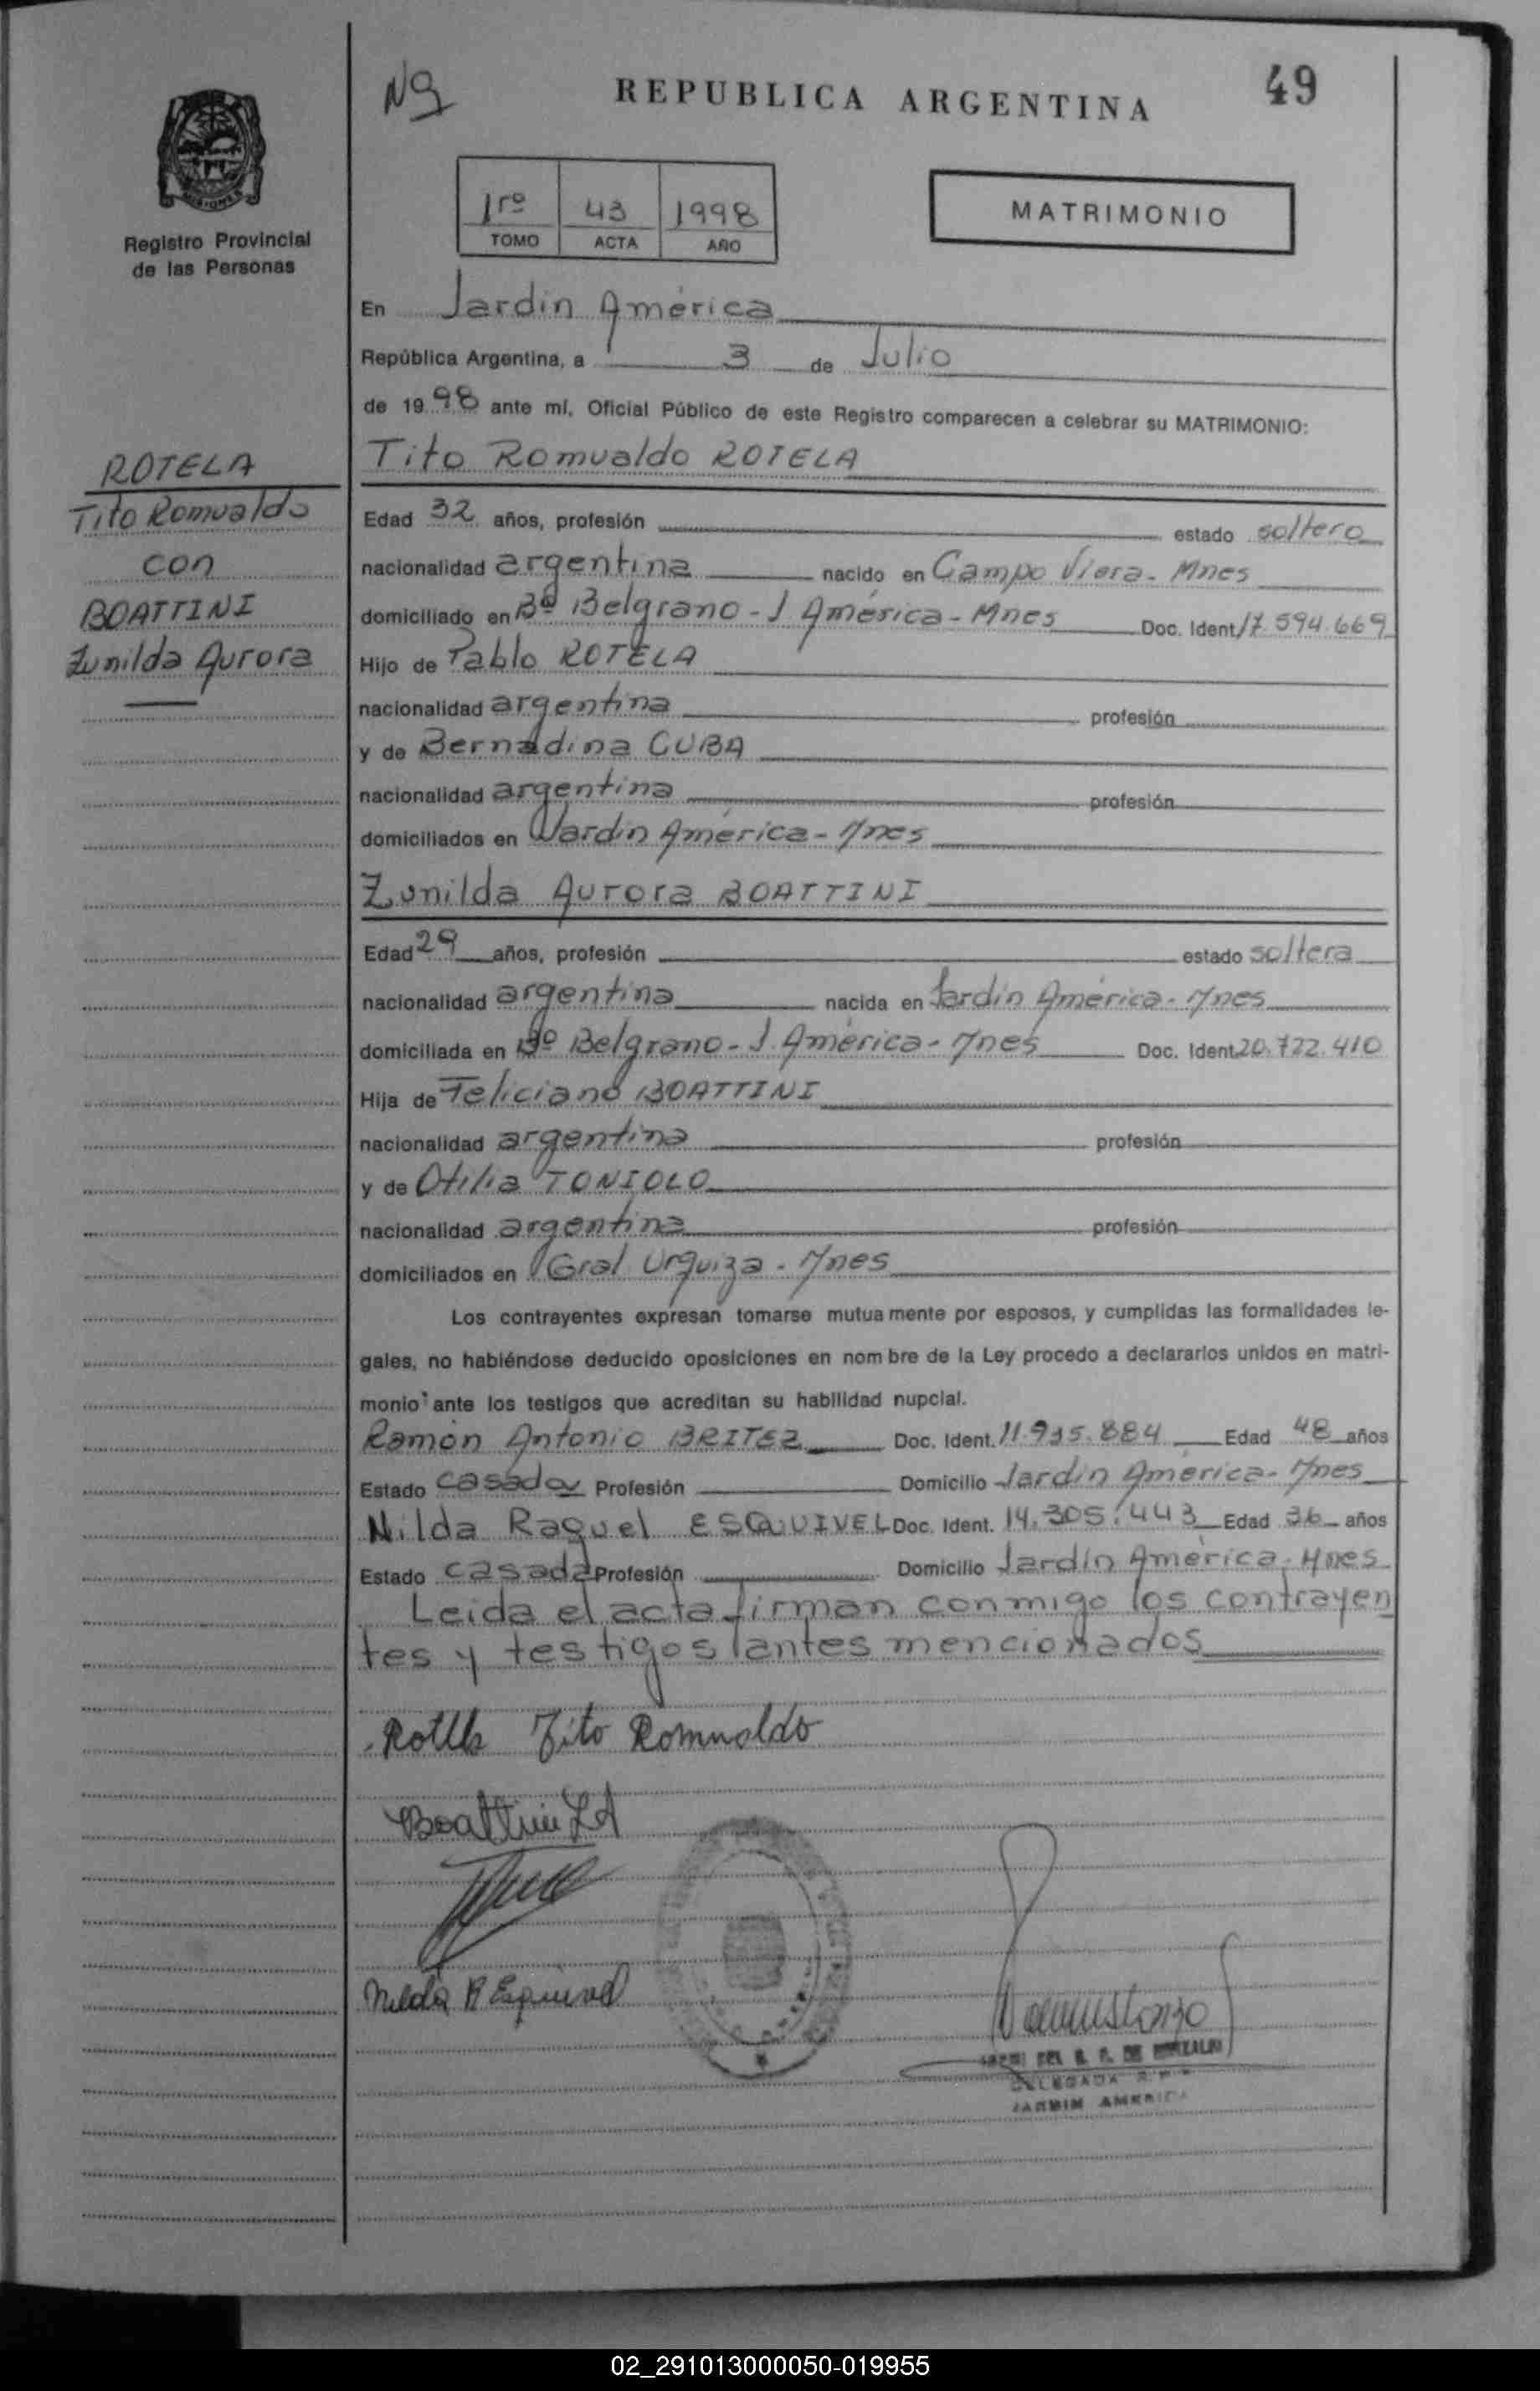 Ng
REPUBLICA ARGENTINA
49
MISIONES
Registro Provincial
de las Personas
1ro 43 1998
TOMO ACTA AÑO
MATRIMONIO
En Jardín América
República Argentina, a 3 de Julio
de 1998 ante mí, Oficial Público de este Registro comparecen a celebrar su MATRIMONIO:
ROTELA
Tito Romualdo
con
BOATTINI
Zunilda Aurora
Tito Romualdo ROTELA
Edad 32 años, profesión estado soltero
nacionalidad argentina nacido en Campo Viera - Mnes
domiciliado en Bº Belgrano - J. América - Mnes Doc. Ident. 17.594.669
Hijo de Pablo ROTELA
nacionalidad argentina profesión
y de Bernadina CUBA
nacionalidad argentina profesión
domiciliados en Jardín América - Mnes
Zunilda Aurora BOATTINI
Edad 29 años, profesión estado soltera
nacionalidad argentina nacida en Jardín América - Mnes
domiciliada en Bº Belgrano - J. América - Mnes Doc. Ident. 20.722.410
Hija de Feliciano BOATTINI
nacionalidad argentina profesión
y de Otilia TONIOLO
nacionalidad argentina profesión
domiciliados en Gral Urquiza - Mnes
Los contrayentes expresan tomarse mutuamente por esposos, y cumplidas las formalidades le-
gales, no habiéndose deducido oposiciones en nombre de la Ley procedo a declararlos unidos en matri-
monio ante los testigos que acreditan su habilidad nupcial.
Ramón Antonio BRITEZ Doc. Ident. 11.935.884 Edad 48 años
Estado casado Profesión Domicilio Jardín América - Mnes
Nilda Raquel ESQUIVEL Doc. Ident. 14.305.443 Edad 36 años
Estado casada Profesión Domicilio Jardín América - Mnes
Leida el acta firman conmigo los contrayen
tes y testigos antes mencionados
Tito Romualdo
Boattini Z A
Nilda R Esquivel
DELEGADA R.P.P
JARDIN AMERICA
02_291013000050-019955